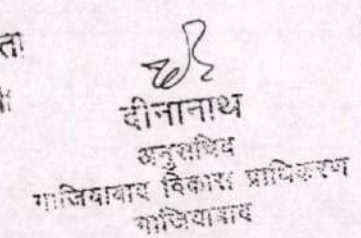 ता
दीनानाथ
अनुसचिव
गाजियाबाद विकास प्राधिकरण
गाजियाबाद